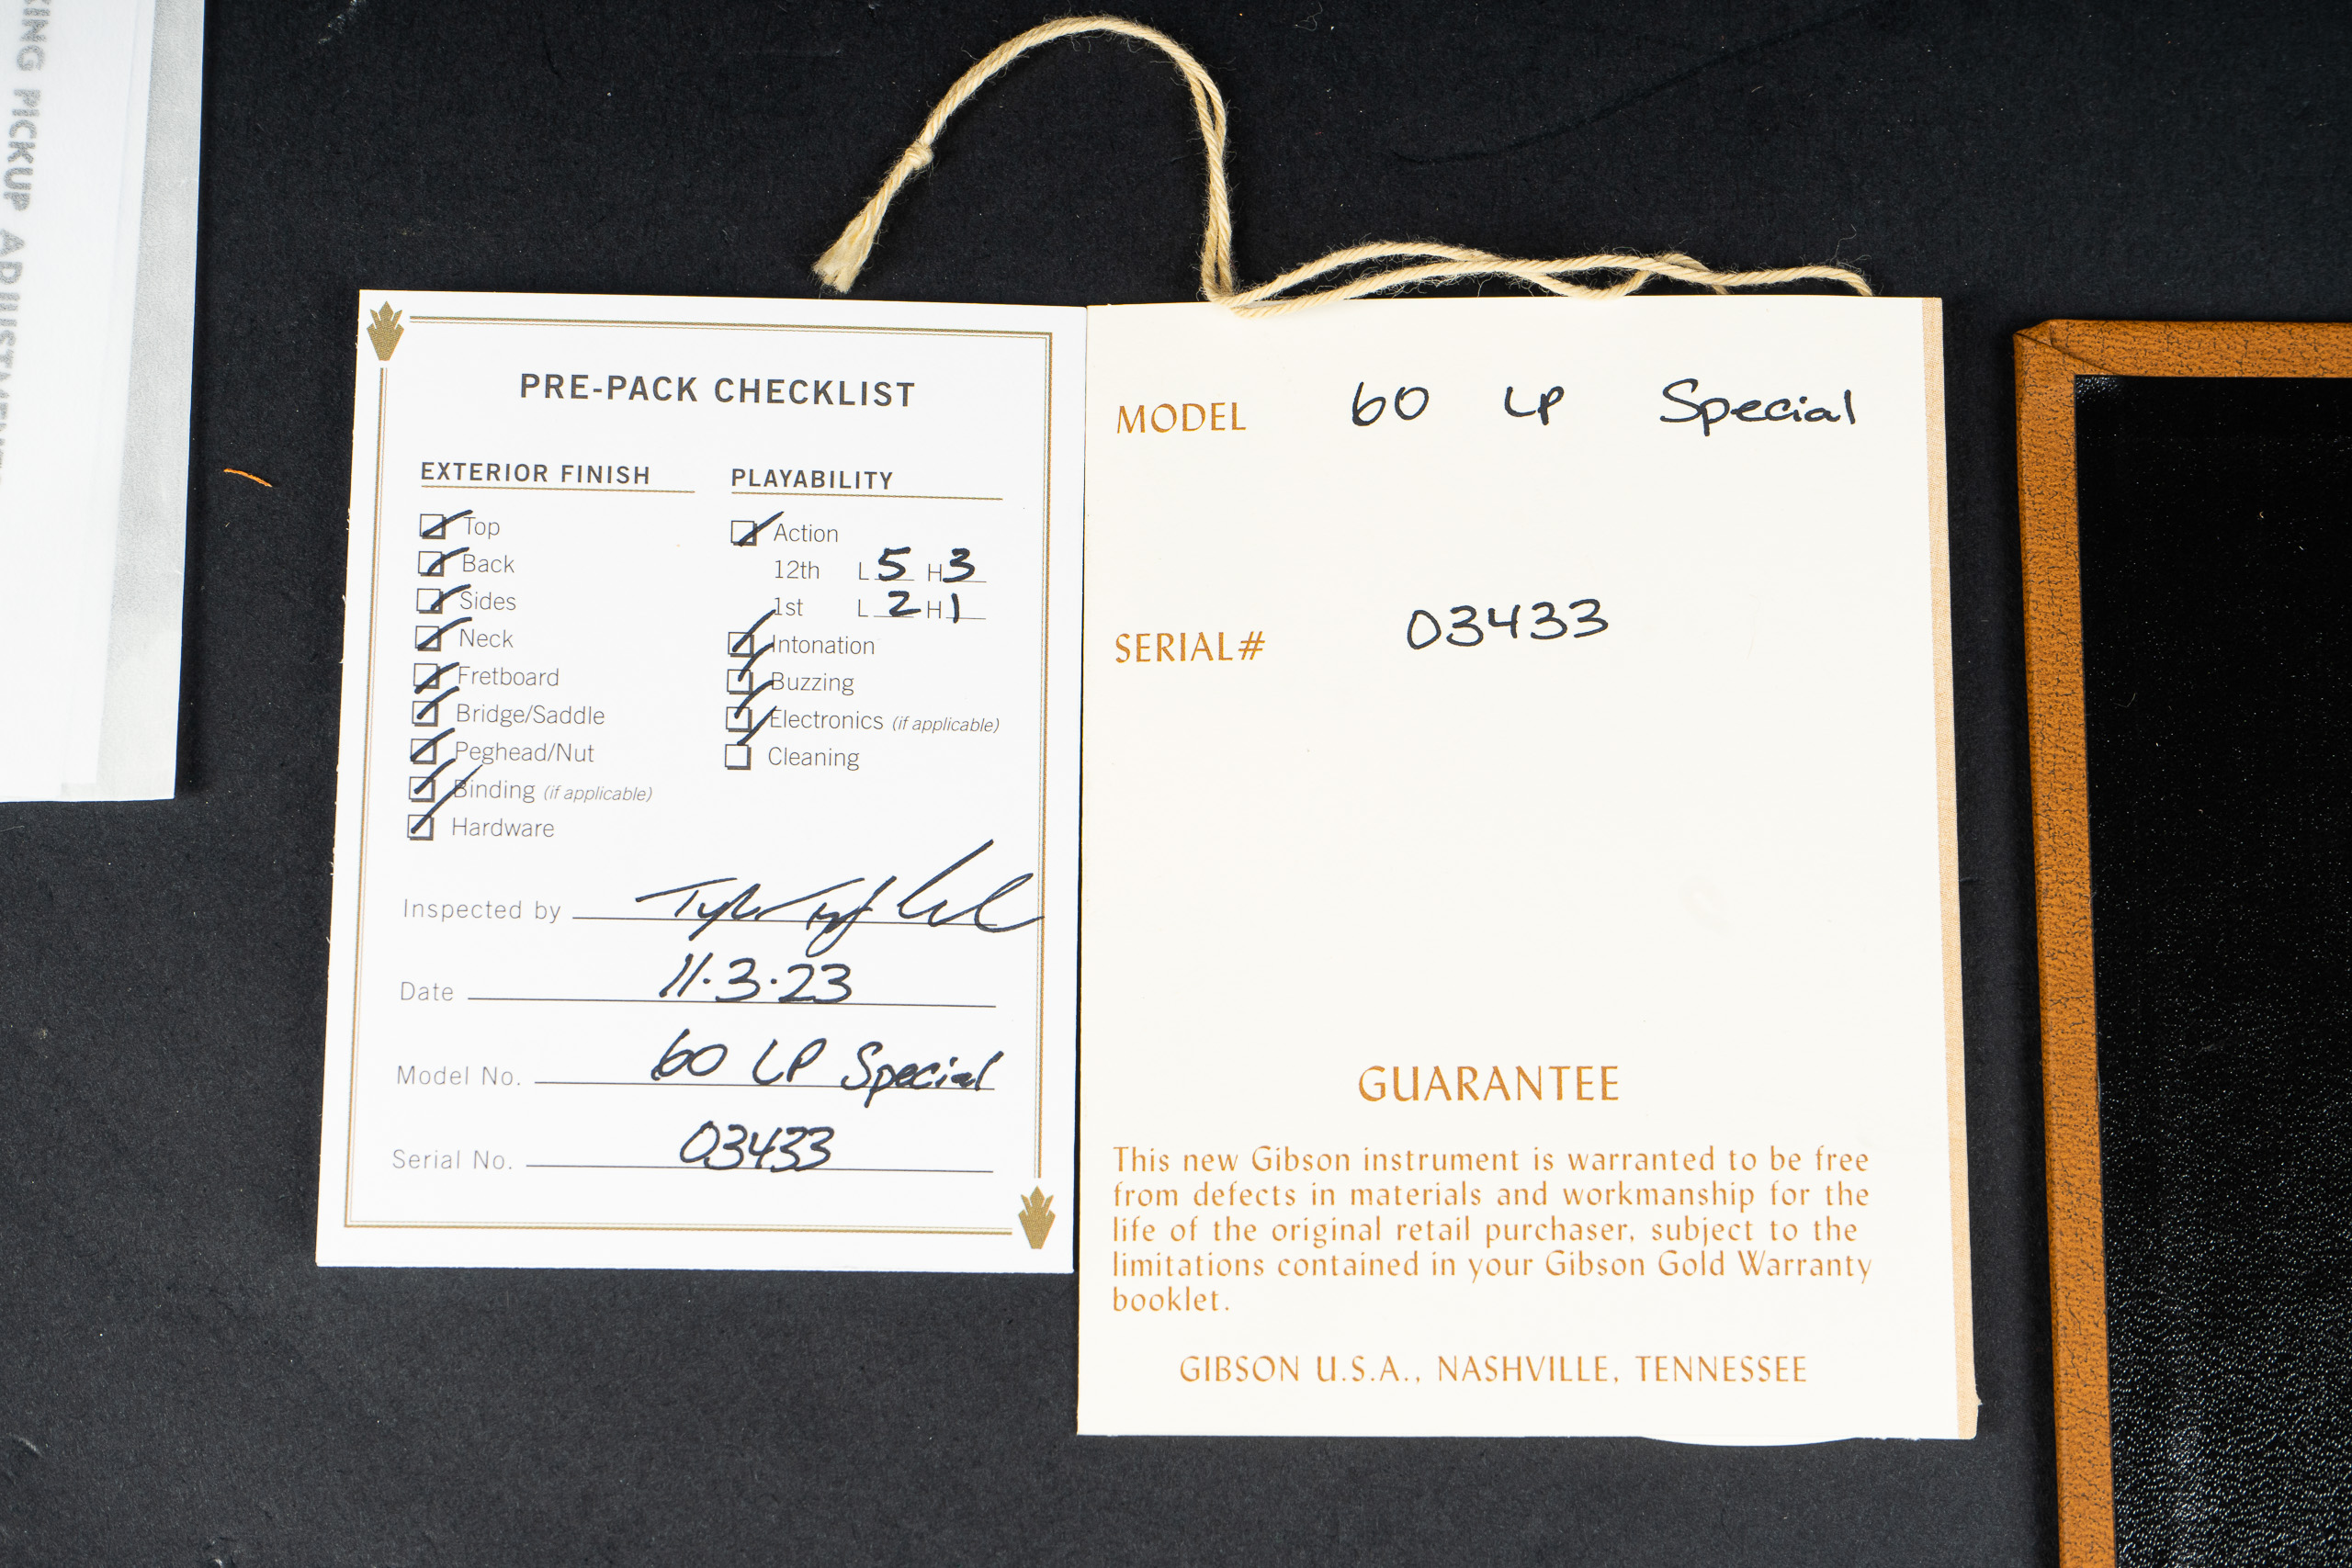 KING PICKUP ADJUSTMENT
PRE-PACK CHECKLIST
EXTERIOR FINISH
Top
Back
Sides
Neck
Fretboard
Bridge/Saddle
Peghead/Nut
Binding (if applicable)
Hardware
PLAYABILITY
Action
12th L 5 H 3
1st L 2 H 1
Intonation
Buzzing
Electronics (if applicable)
Cleaning
Inspected by
Date 11.3.23
Model No. 60 LP Special
Serial No. 03433
MODEL 60 LP Special
SERIAL# 03433
GUARANTEE
This new Gibson instrument is warranted to be free
from defects in materials and workmanship for the
life of the original retail purchaser, subject to the
limitations contained in your Gibson Gold Warranty
booklet.
GIBSON U.S.A., NASHVILLE, TENNESSEE